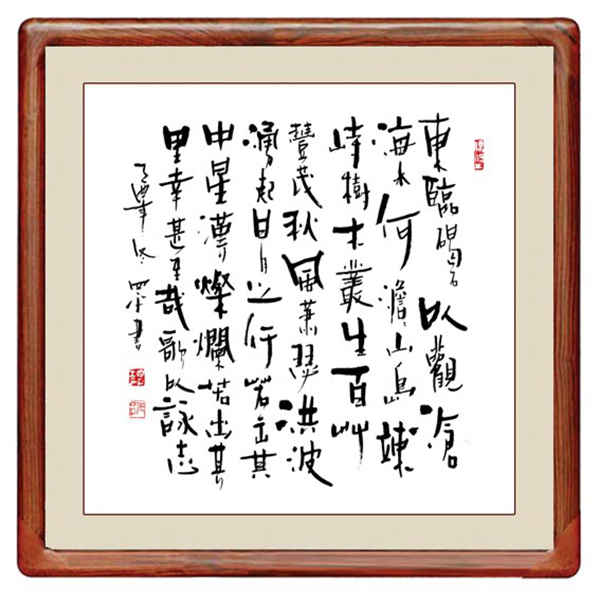 東臨碣石以觀滄
海水何澹山島竦
峙樹木叢生百艸
豐茂秋風蕭瑟洪波
湧起日月之行若出其
中星漢燦爛若出其
里幸甚至哉歌以詠志
年冬書